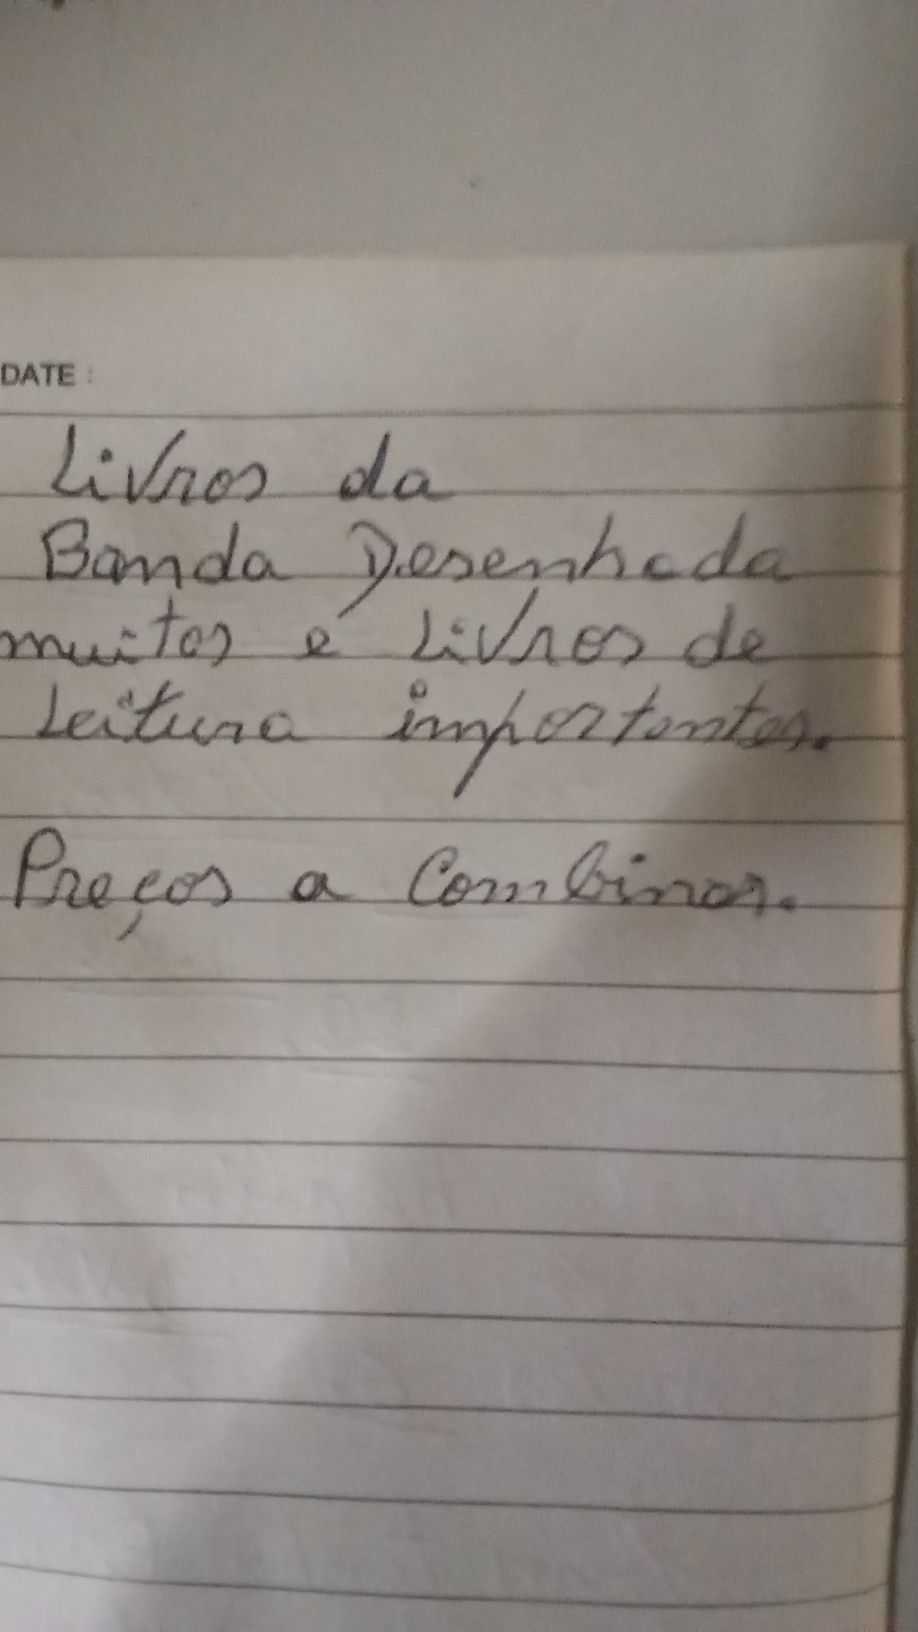 DATE :
Livros da
Banda Desenhada
muitos e Livros de
Leitura importantes.
Preços a Combinar.